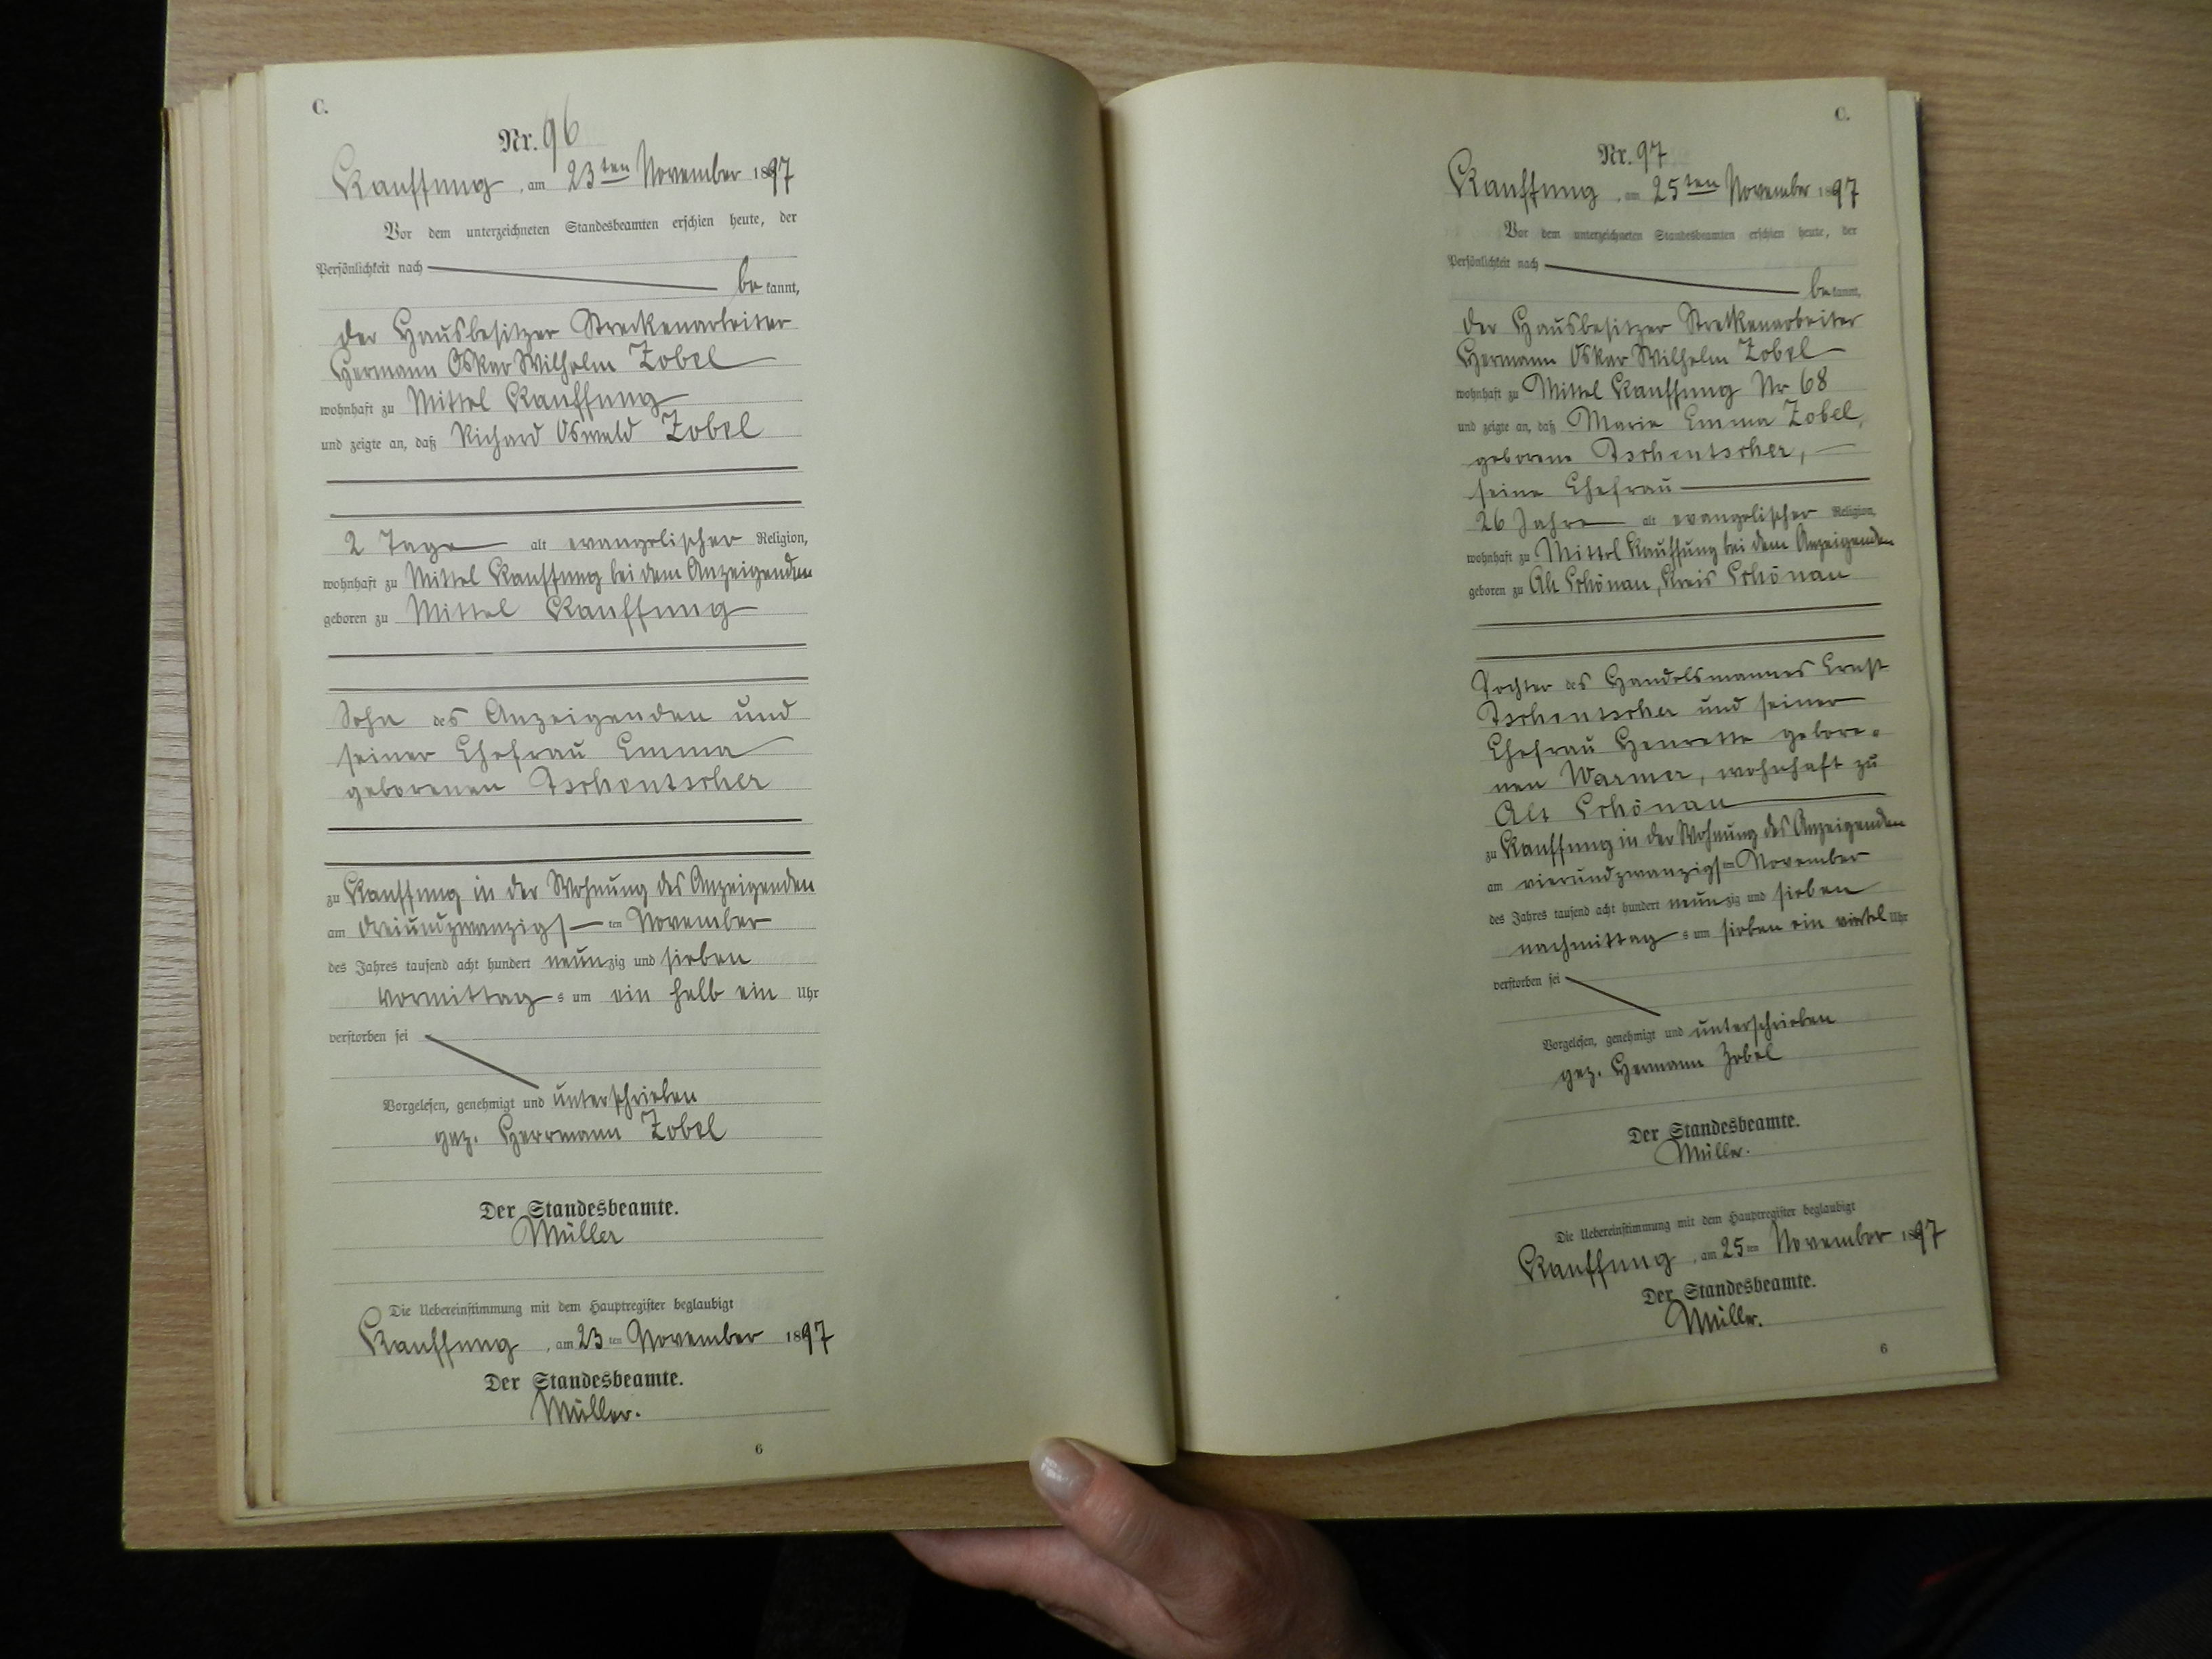 C.
Nr. 96
Kauffung, am 23ten November 1897
Vor dem unterzeichneten Standesbeamten erschien heute, der
Persönlichkeit nach
bekannt,
der Hausbesitzer Streckenarbeiter
Hermann Oskar Wilhelm Zobel
wohnhaft zu Mittel Kauffung
und zeigte an, daß Richard Oswald Zobel
2 Tage alt evangelischer Religion,
wohnhaft zu Mittel Kauffung bei dem Anzeigenden
geboren zu Mittel Kauffung
Sohn des Anzeigenden und
seiner Ehefrau Emma
geborenen Tschentscher
zu Kauffung in der Wohnung des Anzeigenden
am dreiundzwanzigsten November
des Jahres tausend acht hundert neunzig und sieben
vormittags um ein halb ein Uhr
verstorben sei
Vorgelesen, genehmigt und unterschrieben
gez. Herrmann Zobel
Der Standesbeamte.
Müller
Die Uebereinstimmung mit dem Hauptregister beglaubigt
Kauffung, am 23ten November 1897
Der Standesbeamte.
Müller.
6
C.
Nr. 97
Kauffung, am 25ten November 1897
Vor dem unterzeichneten Standesbeamten erschien heute, der
Persönlichkeit nach
bekannt,
der Hausbesitzer Streckenarbeiter
Hermann Oskar Wilhelm Zobel
wohnhaft zu Mittel Kauffung Nr 68
und zeigte an, daß Marie Emma Zobel,
geborene Tschentscher,
seine Ehefrau
26 Jahre alt evangelischer Religion,
wohnhaft zu Mittel Kauffung bei dem Anzeigenden
geboren zu Alt Schönau, Kreis Schönau
Tochter des Handelsmannes Ernst
Tschentscher und seiner
Ehefrau Henrette gebore=
nen Warmer, wohnhaft zu
Alt Schönau
zu Kauffung in der Wohnung des Anzeigenden
am vierundzwanzigsten November
des Jahres tausend acht hundert neunzig und sieben
nachmittags um sieben ein viertel Uhr
verstorben sei
Vorgelesen, genehmigt und unterschrieben
gez. Hermann Zobel
Der Standesbeamte.
Müller.
Die Uebereinstimmung mit dem Hauptregister beglaubigt
Kauffung, am 25ten November 1897
Der Standesbeamte.
Müller.
6